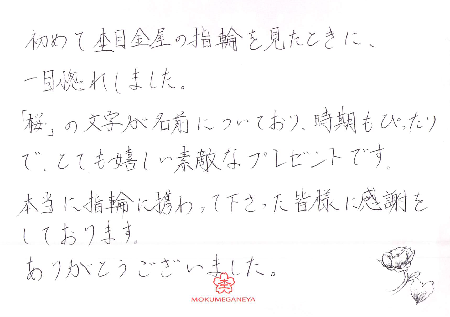 初めて杢目金屋の指輪を見たときに、
一目惚れしました。
「桜」の文字が名前についており、時期もぴったり
で、とても嬉しい素敵なプレゼントです。
本当に指輪に携わって下さった皆様に感謝を
しております。
ありがとうございました。
MOKUMEGANEYA